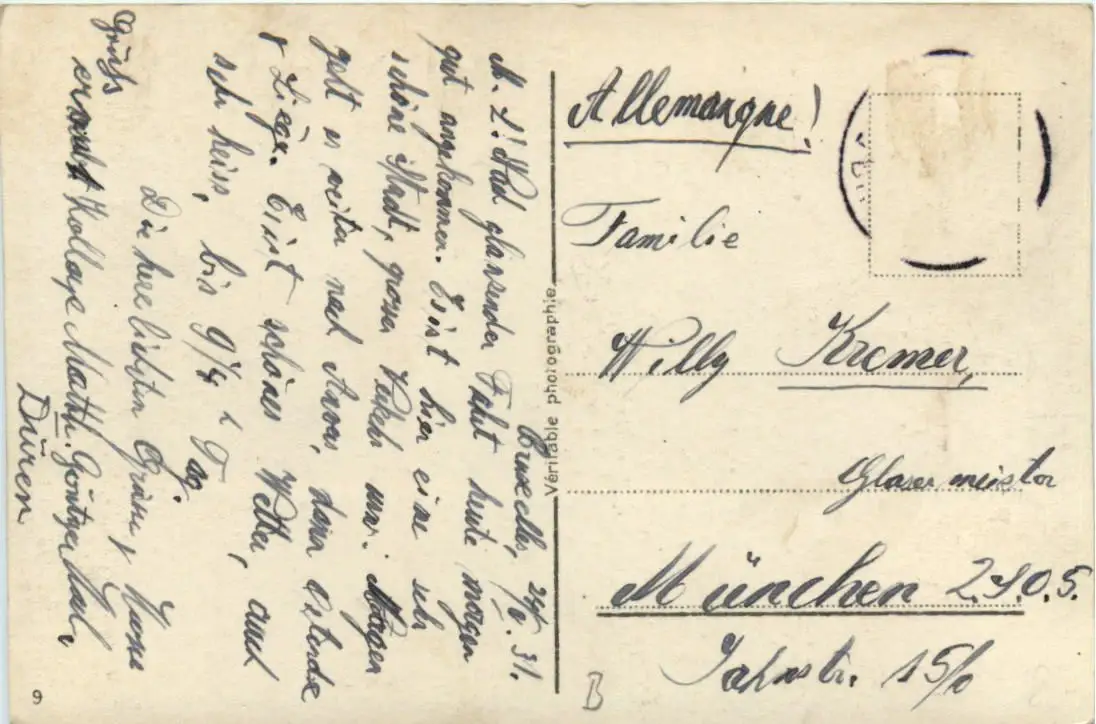 Bruxelles, 24/V. 31.
M. L! Nach glänzender Fahrt heute morgen
gut angekommen. Es ist hier eine sehr
schöne Stadt, grosser Verkehr usw. Morgen
geht es weiter nach Anvers, dann Ostende
& Liége. Es ist schönes Wetter, auch
sehr heiss, bis 9¼ Tag.
Die herzlichsten Grüsse v. Hans
Gruss
Kollege Math.
Düren
Véritable photographie
Allemangne!
Familie
Willy Kremer,
Glasermeister
München 2.S.O.5.
Jahnstr. 15/0
B
9